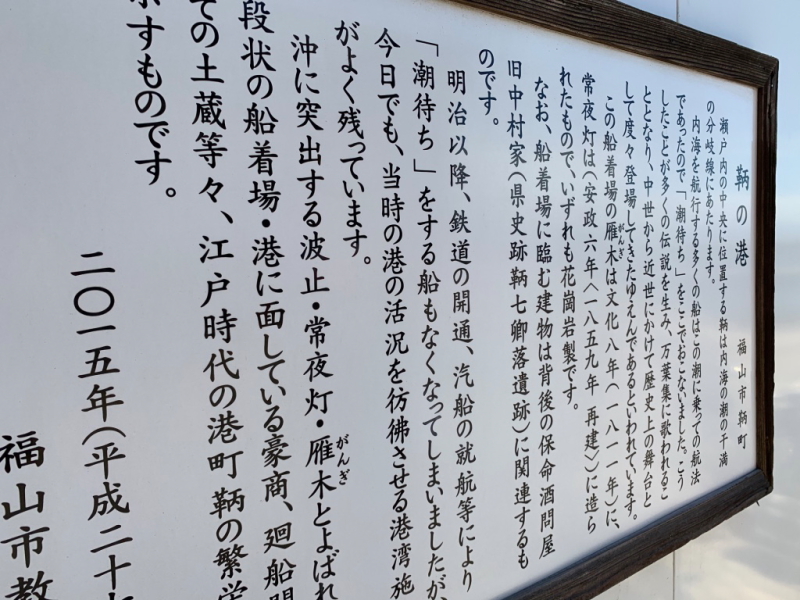 鞆の港
福山市鞆町
瀬戸内の中央に位置する鞆は内海の潮の干満
の分岐線にあたります。
内海を航行する多くの船はこの潮に乗っての航法
であったので「潮待ち」をここでおこないました。こう
したことが多くの伝説を生み、万葉集に歌われるこ
ととなり、中世から近世にかけて歴史上の舞台と
して度々登場してきたゆえんであるといわれています。
この船着場の雁木は文化八年(一八一一年)に、
がんぎ
常夜灯は(安政六年〈一八五九年 再建〉)に造ら
れたもので、いずれも花崗岩製です。
なお、船着場に臨む建物は背後の保命酒問屋
旧中村家(県史跡鞆七卿落遺跡)に関連するも
のです。
明治以降、鉄道の開通、汽船の就航等により
「潮待ち」をする船もなくなってしまいましたが、
今日でも、当時の港の活況を彷彿させる港湾施
がよく残っています。
沖に突出する波止・常夜灯・雁木とよばれ
がんぎ
段状の船着場・港に面している豪商、廻船問
ての土蔵等々、江戸時代の港町鞆の繁栄
すものです。
二〇一五年(平成二十七
福山市教